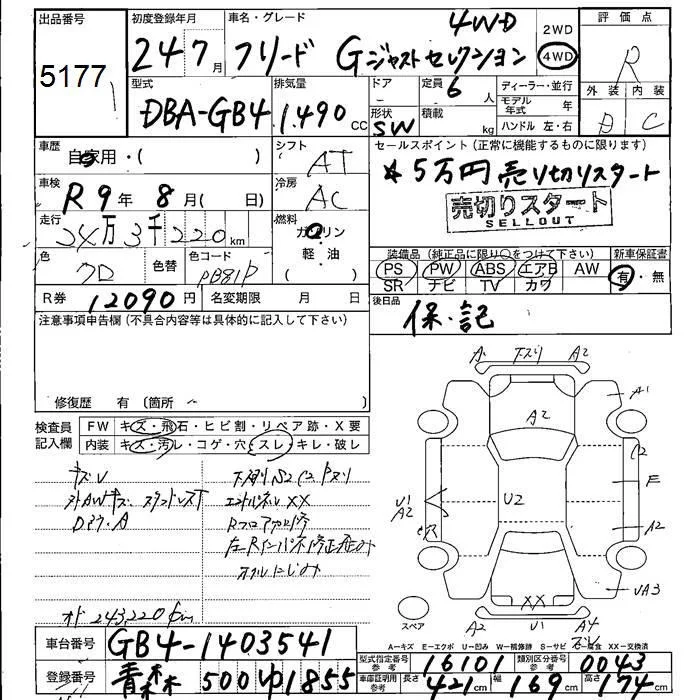 出品番号 初度登録年月 車名・グレード 評価点
5177 24 7月 フリード Gジャストセレクション 4WD 2WD 4WD R
型式 排気量 ドア 定員 ディーラー・並行 外装 内装
DBA-GB4 1,490 CC 6人 モデル年式 年 D C
形状 SW 積載 kg ハンドル 左・右
車歴 シフト セールスポイント(正常に機能するものに限ります)
自家用・( ) AT 5万円売り切りスタート
車検 冷房 売切りスタート
R9年 8月( 日) AC SELLOUT
走行 燃料
24万3千220km ガソリン
軽・油
色 色替 色コード 装備品(純正品に限り○をつけて下さい) 新車保証書
クロ PB81P PS PW ABS エアB AW 有・無
SR ナビ TV カワ
R券 12090円 名変期限 月 日 後日品
保・記
注意事項申告欄(不具合内容等は具体的に記入して下さい)
修復歴 有(箇所
検査員記入欄 FW キズ・飛石・ヒビ割・リペア跡・X要
内装 キズ・汚レ・コゲ・穴・スレ・キレ・破レ
キズU
下廻りS2 C2
外AWキズ
エンドパネルXX
オイルにじみ
オド 243220km
A 下スリ A2
A1
A2
C2
E
U1
A2
U2
A2
XX
UA3
スペア A2 U1 A4
A-キズ E-エクボ U-凹み W-補修跡 S-サビ C-腐食 XX-交換済
車台番号 GB4-1403541
型式指定番号 参考 16101 類別区分番号 参考 0043
登録番号 青森 500 ゆ 1855
車庫証明用 参考 長さ 421cm 幅 169cm 高さ 174cm